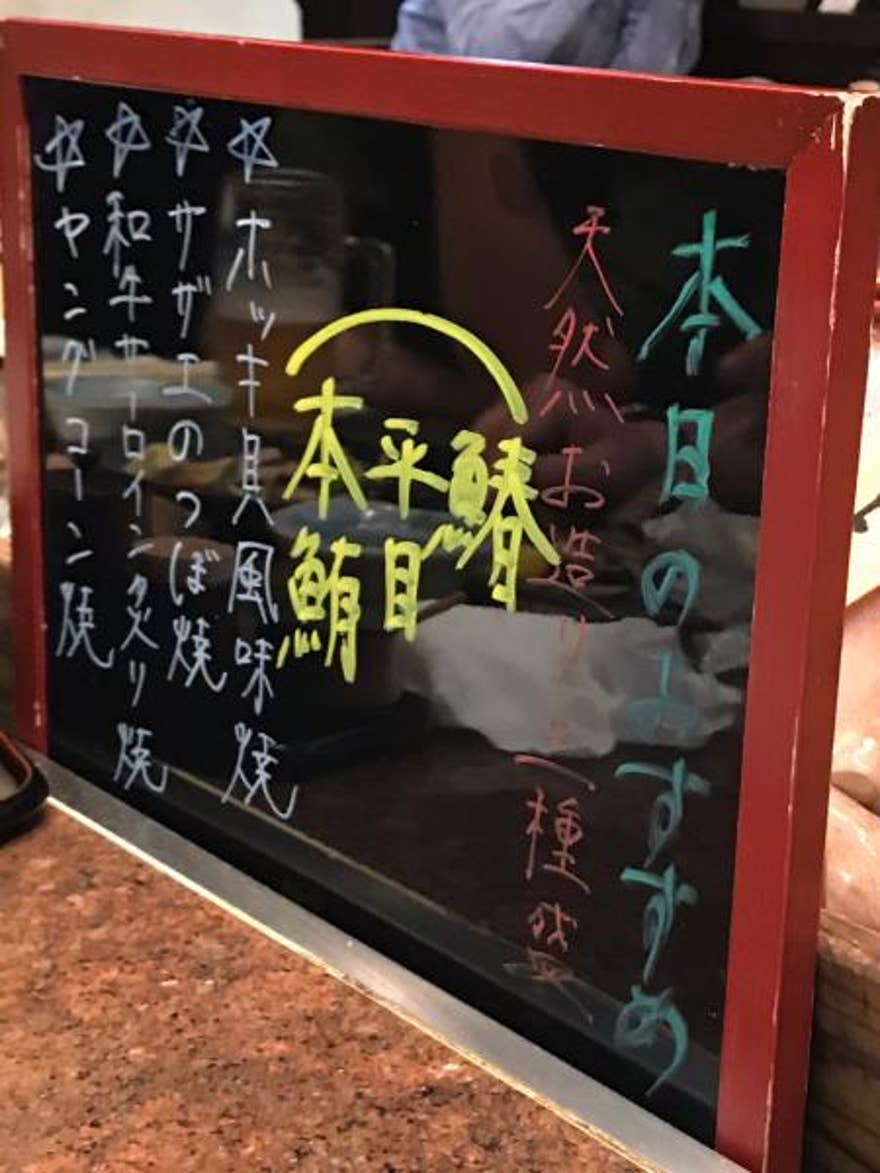 本日のおすすめ
天然お造り三種盛
鰆
平目
本鮪
☆ホッキ貝風味焼
☆サザエのつぼ焼
☆和牛サーロイン炙り焼
☆ヤングコーン焼